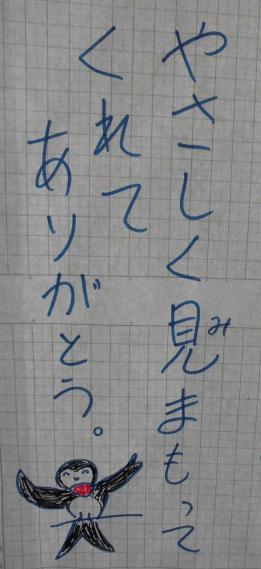 やさしく見まもって
くれて
ありがとう。
み